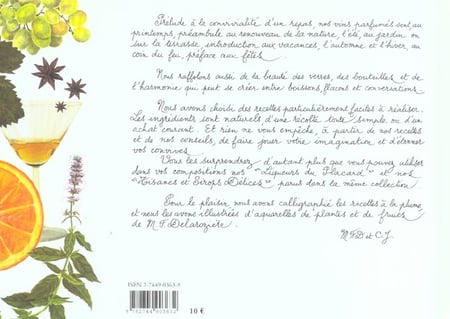 Prélude à la convivialité d'un repas, nos vins parfumés sont, au
printemps, préambule au renouveau de la nature, l'été, au jardin ou
sur la terrasse, introduction aux vacances, l'automne et l'hiver, au
coin du feu, préface aux fêtes.
Nous raffolons aussi de la beauté des verres, des bouteilles et de
l'harmonie qui peut se créer entre boissons, flacons et conversations.
Nous avons choisi des recettes particulièrement faciles à réaliser.
Les ingrédients sont naturels d'une récolte toute simple ou d'un
achat courant. Et rien ne vous empêche, à partir de nos recettes
et de nos conseils, de faire jouer votre imagination et d'étonner
vos convives.
Vous les surprendrez d'autant plus que vous pouvez utiliser
dans vos compositions nos "Liqueurs du Placard" et nos
"Tisanes et Sirops Délices", parus dans la même collection.
Pour le plaisir, nous avons calligraphié les recettes à la plume
et nous les avons illustrées d'aquarelles de plantes et de fruits
de M.F. Delarozière.
M.F.D et C.J.
ISBN 2-7449-0363-9
9 782744 903632
10 €